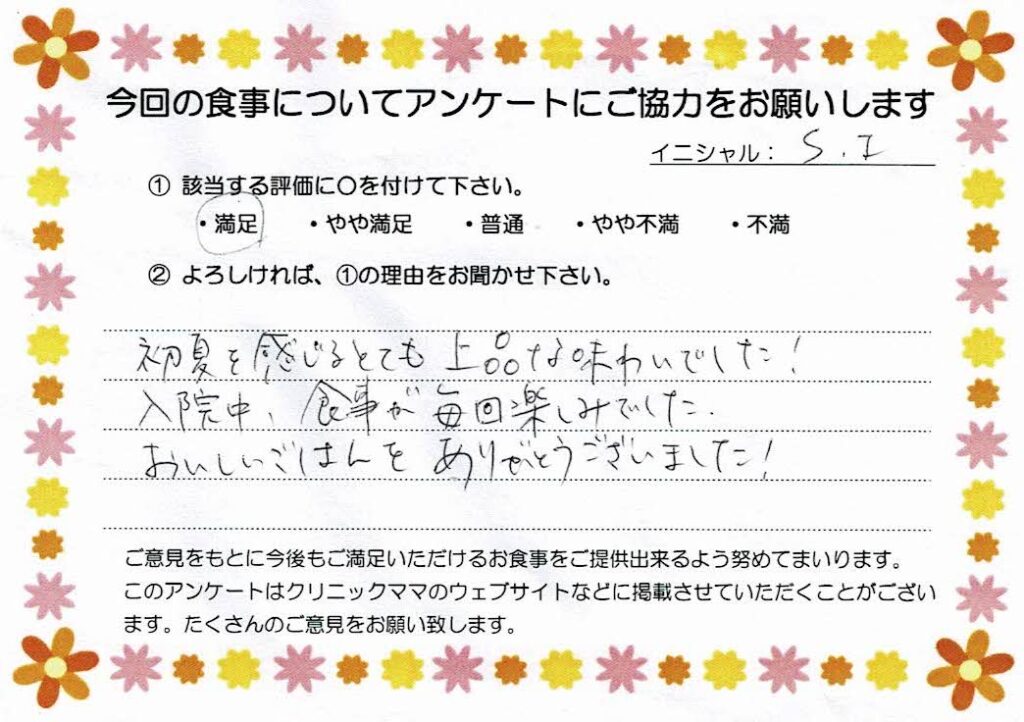 今回の食事についてアンケートにご協力をお願いします
イニシャル： S.I
① 該当する評価に〇を付けて下さい。
・満足 ・やや満足 ・普通 ・やや不満 ・不満
② よろしければ、①の理由をお聞かせ下さい。
初夏を感じるとても上品な味わいでした！
入院中、食事が毎回楽しみでした.
おいしいごはんをありがとうございました！
ご意見をもとに今後もご満足いただけるお食事をご提供出来るよう努めてまいります。
このアンケートはクリニックママのウェブサイトなどに掲載させていただくことがござい
ます。たくさんのご意見をお願い致します。